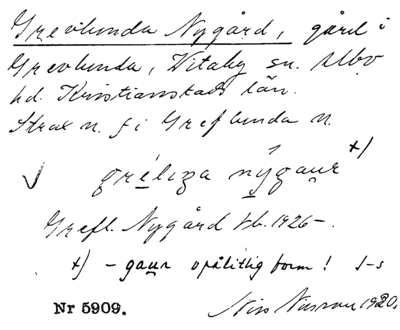 Grevlunda Nygård, gård i
Grevlunda, Vitaby sn. Albo
hd. Kristianstads län.
Strax n. f i Greflunda n.
√ gréliza nýgaur +)
Grefl. Nygård kb. 1926–
+) – gaur opålitlig form! I–s
Nr 5909. 1920.